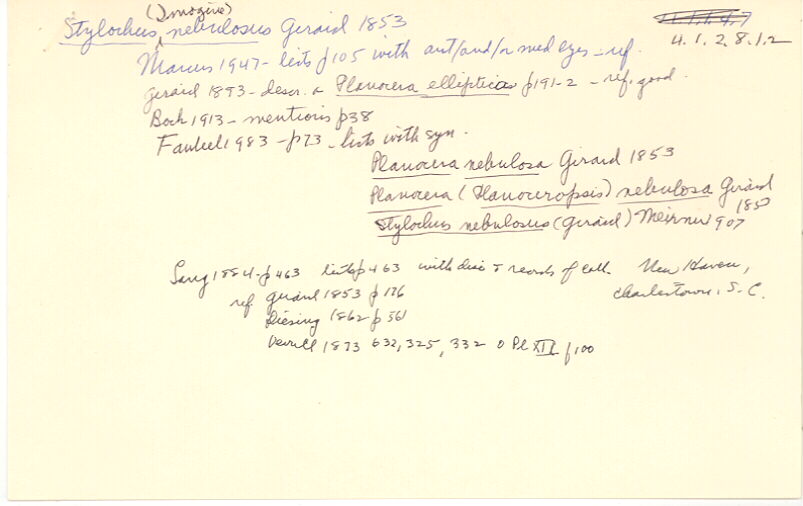 (Imogine)
Stylochus ^ nebulosus Girard 1853
4.1.2.8.1.2
Marcus 1947 - lists p105 with ant/and/or med eyes - ref.
Girard 1893 - descr. & Planocera elliptica p191-2 - ref, good.
Bock 1913 - mentions p38
Faubel 1983 - p73 - lists with syn.
Planocera nebulosa Girard 1853
Planocera (Planoceropsis) nebulosa Girard 1853
Stylochus nebulosus (Girard) Meixner 907
Lang 1884 - p463 lists p463 with disc & records of coll. New Haven,
ref Girard 1853 p 176 Charlestown, S.C.
Diesing 1862 - p 561
Verrill 1873 632, 325, 332 Pl XIX f100